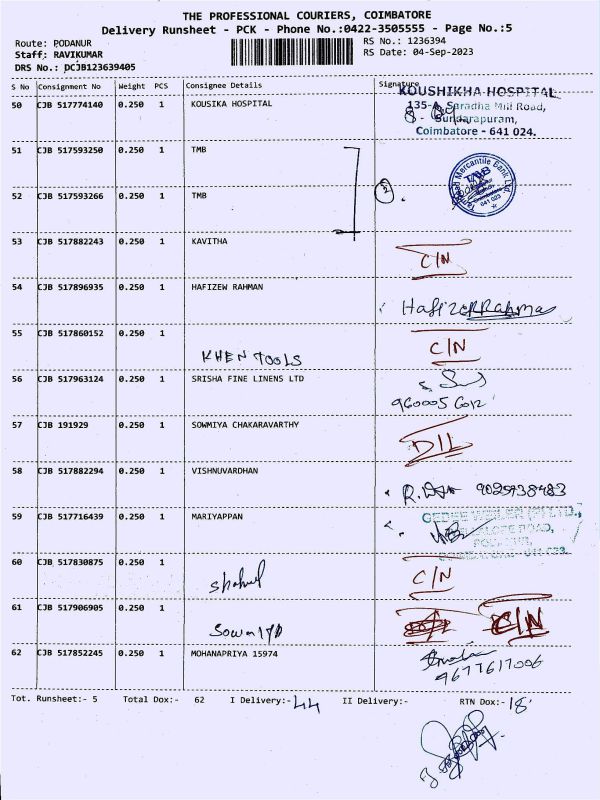 THE PROFESSIONAL COURIERS, COIMBATORE
Delivery Runsheet - PCK - Phone No.:0422-3505555 - Page No.:5
Route: PODANUR
Staff: RAVIKUMAR
DRS No.: DCJB123639405
RS No.: 1236394
RS Date: 04-Sep-2023
S No Consignment No Weight PCS Consignee Details Signature
50 CJB 517774140 0.250 1 KOUSIKA HOSPITAL
KOUSHIKHA HOSPITAL
135-A, Saradha Mill Road,
Sundarapuram,
Coimbatore - 641 024.
51 CJB 517593250 0.250 1 TMB
Tamilnad Mercantile Bank Ltd.
TMB
641 023
52 CJB 517593266 0.250 1 TMB
2
53 CJB 517882243 0.250 1 KAVITHA
C/N
54 CJB 517896935 0.250 1 HAFIZEW RAHMAN
Hafizer Rahman
55 CJB 517860152 0.250 1
KHEN TOOLS
C/N
56 CJB 517963124 0.250 1 SRISHA FINE LINENS LTD
9600056012
57 CJB 191929 0.250 1 SOWMIYA CHAKARAVARTHY
D/L
58 CJB 517882294 0.250 1 VISHNUVARDHAN
9025938483
59 CJB 517716439 0.250 1 MARIYAPPAN
GEDEE WEILER (P) LTD.,
60 CJB 517830875 0.250 1
C/N
61 CJB 517906905 0.250 1
C/N
62 CJB 517852245 0.250 1 MOHANAPRIYA 15974
9677617006
Tot. Runsheet:- 5 Total Dox:- 62 I Delivery:- 44 II Delivery:- RTN Dox:- 18